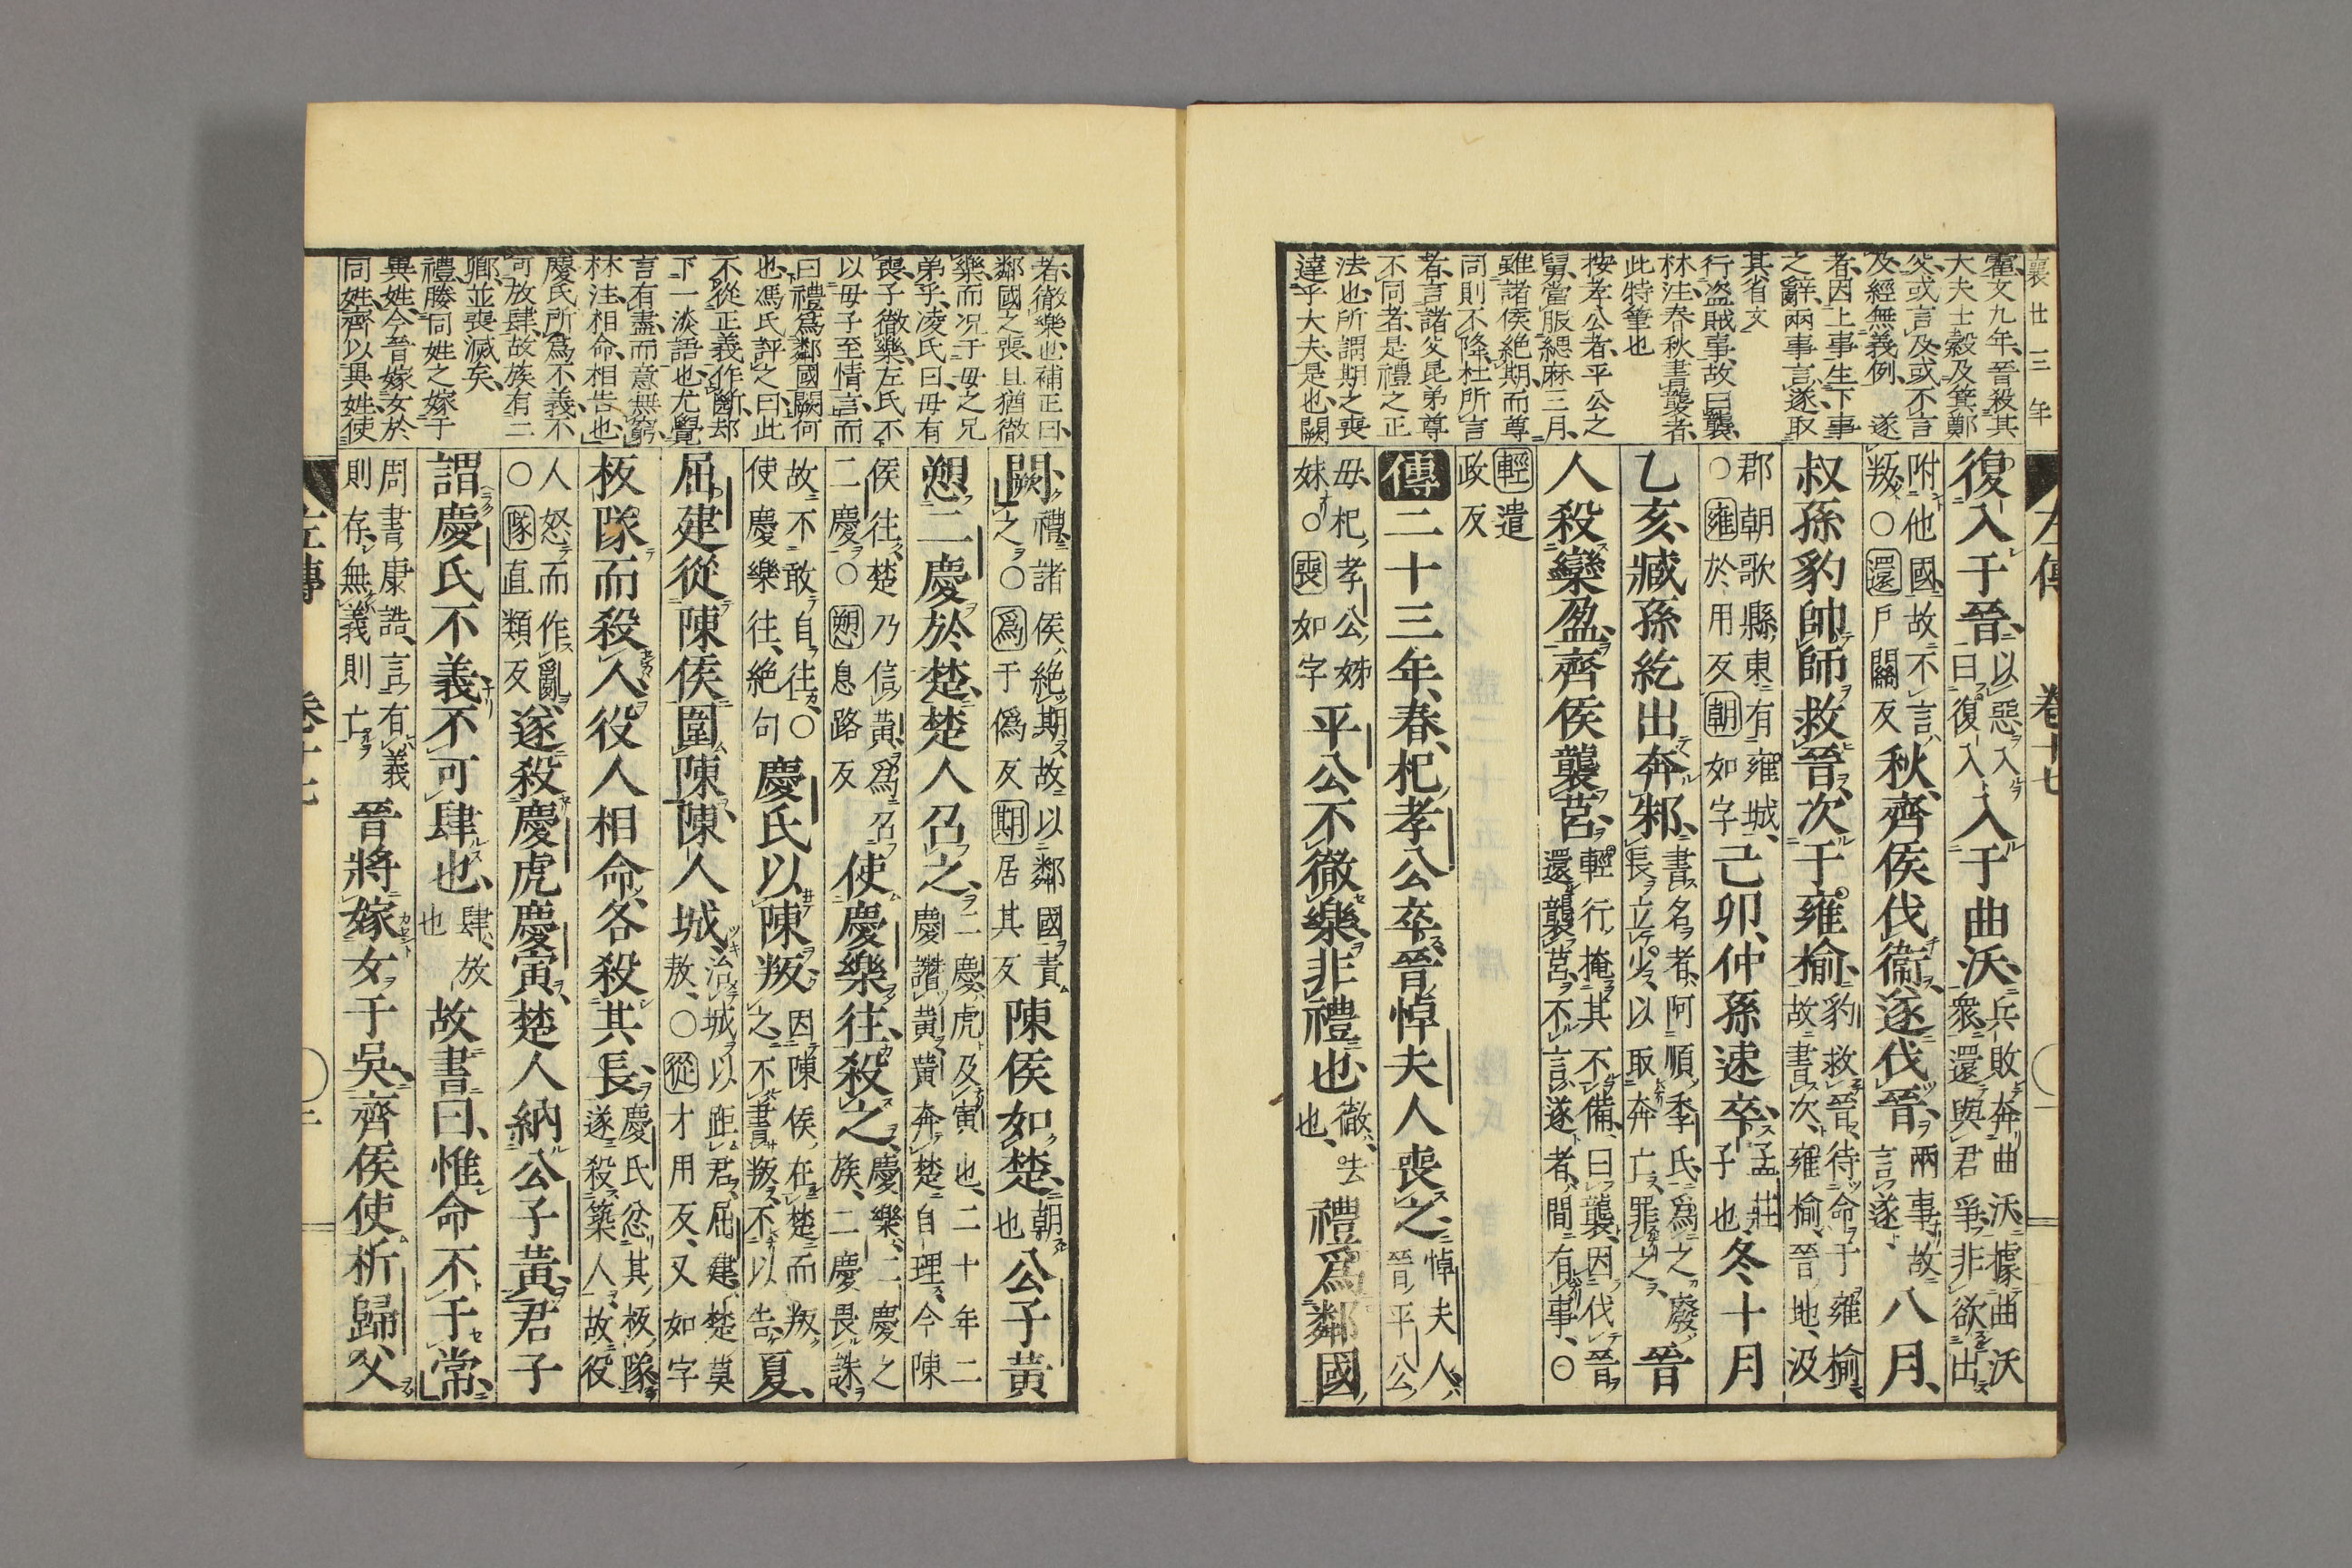 襄廿三年
左傳 卷十七
霍文九年晉殺其
大夫士縠及箕鄭
父或言及或不言
及經無義例 遂
者因上事生下事
之辭兩事言遂取
其省文
行盗賊事故曰襲
林注春秋書襲者
此特筆也
按孝公者平公之
舅當服緦麻三月
雖諸侯絶期而尊
同則不降杜所言
者言諸父昆弟尊
不同者是禮之正
法也所謂期之喪
達乎大夫是也闕
復入于晉以惡入曰復入入于曲沃兵敗奔曲沃據曲沃衆還與君爭非欲出
附他國故不言叛○還戶關反秋齊侯伐衞遂伐晉兩事故言遂八月
叔孫豹帥師救晉次于雍榆豹救晉待命于雍榆故書次雍榆晉地汲
郡朝歌縣東有雍城○雍於用反朝如字己卯仲孫速卒孟莊子也冬十月
乙亥臧孫紇出奔邾書名者阿順季氏爲之廢長立少以取奔亡罪之晉
人殺欒盈齊侯襲莒輕行掩其不備曰襲因伐晉還襲莒不言遂者間有事○
輕遣政反
傳二十三年春杞孝公卒晉悼夫人喪之悼夫人晉平公
母杞孝公姊妹○喪如字平公不徹樂非禮也徹去也禮爲鄰國
者徹樂也補正曰
鄰國之喪且猶徹
樂而况于母之兄
弟乎凌氏曰毋有
喪子徹樂左氏不
以毋子至情言而
曰禮爲鄰國闕何
也馮氏評之曰此
不從正義作斷却
下一淡語也尤覺
言有盡而意無窮
林注相命相告也
慶氏所爲不義不
可放肆故族有二
卿並喪滅矣
禮媵同姓之嫁于
異姓今晉嫁女於
同姓齊以異姓使
闕禮諸侯絶期故以鄰國責之○爲于僞反期居其反陳侯如楚朝也公子黄
愬二慶於楚楚人召之二慶虎及寅也二十年二慶譖黄黄奔楚自理今陳
侯往楚乃信黄爲召二慶○愬息路反使慶樂往殺之慶樂二慶之族二慶畏誅
故不敢自往○使慶樂往絶句慶氏以陳叛因陳侯在楚而叛之不書叛不以告夏
屈建從陳侯圍陳陳人城治城以距君屈建楚莫敖○從才用反又如字
板隊而殺人役人相命各殺其長慶氏忿其板隊遂殺築人故役
人怒而作亂○隊直類反遂殺慶虎慶寅楚人納公子黄君子
謂慶氏不義不可肆也肆放也故書曰惟命不于常
周書康誥言有義則存無義則亡晉將嫁女于吳齊侯使析歸父
左傳 卷十七 二